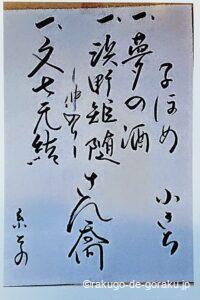 子ほめ 小きち
一、夢の酒
一、浜野矩随 さん喬
―仲入り―
一、文七元結
糸 その
©rakugo-de-goraku.jp